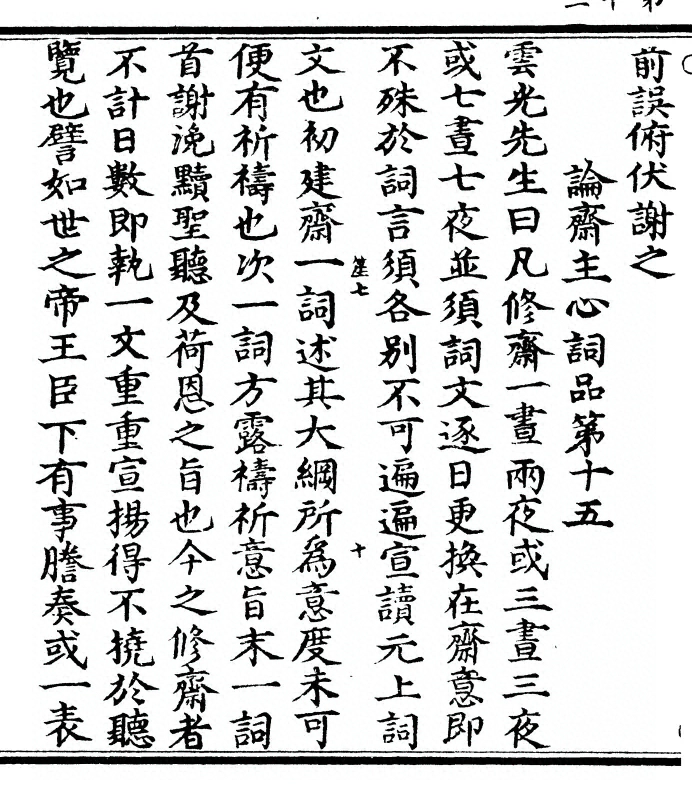 前誤俯伏謝之
論齋主心詞品第十五
雲光先生曰凡修齋一晝兩夜或三晝三夜
或七晝七夜並須詞文逐日更換在齋意即
不殊於詞言須各別不可遍遍宣讀元上詞
笙七 十
文也初建齋一詞述其大綱所為意度未可
便有祈禱也次一詞方露禱祈意旨末一詞
首謝浼黷聖聽及荷恩之旨也今之修齋者
不計日數即執一文重重宣揚得不撓於聽
覽也譬如世之帝王臣下有事謄奏或一表